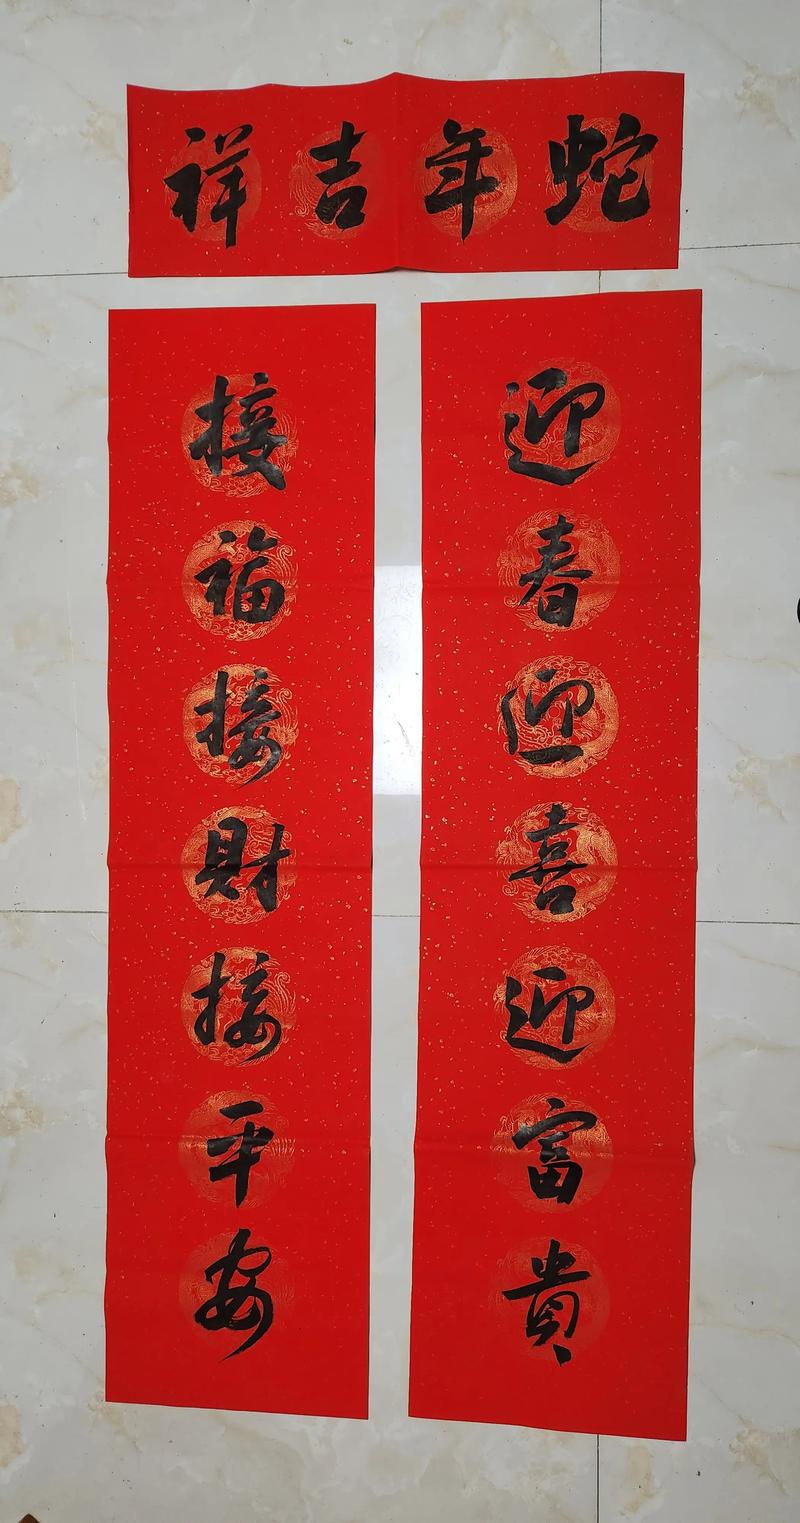 蛇年吉祥
迎春迎喜迎富貴
接福接財接平安